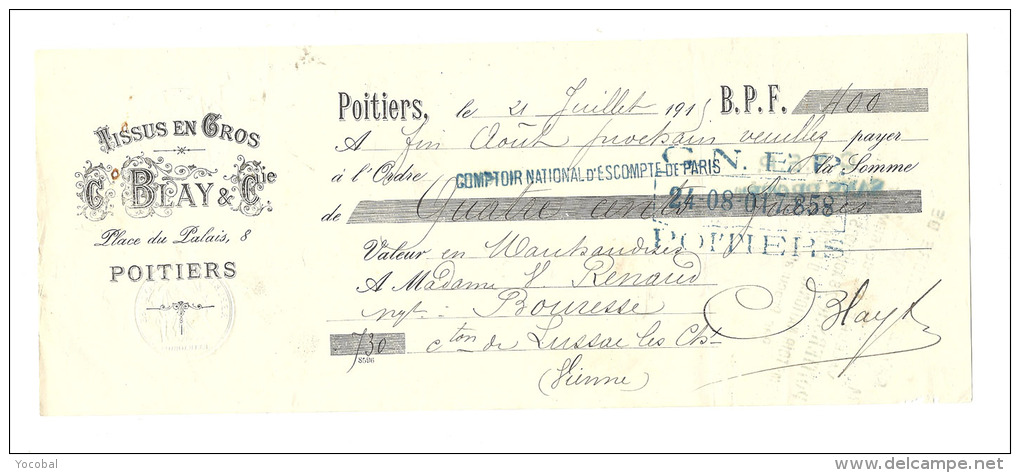 TISSUS EN GROS
Cº BLAY & Cie
Place du Palais, 8
POITIERS
Poitiers, le 21 Juillet 191 B.P.F. 400
A fin Août prochain veuillez payer
à l'Ordre COMPTOIR NATIONAL D'ESCOMPTE DE PARIS la Somme
C. N. E. P.
de Quatre cents
24-08-01 7.858
POITIERS
Valeur en Marchandises
A Madame V. Renaud
Ngt. Bouresse
730 cton de Lussac les Chx
S506
(Vienne)
C Blay &
Yocobal
www.delcampe.net